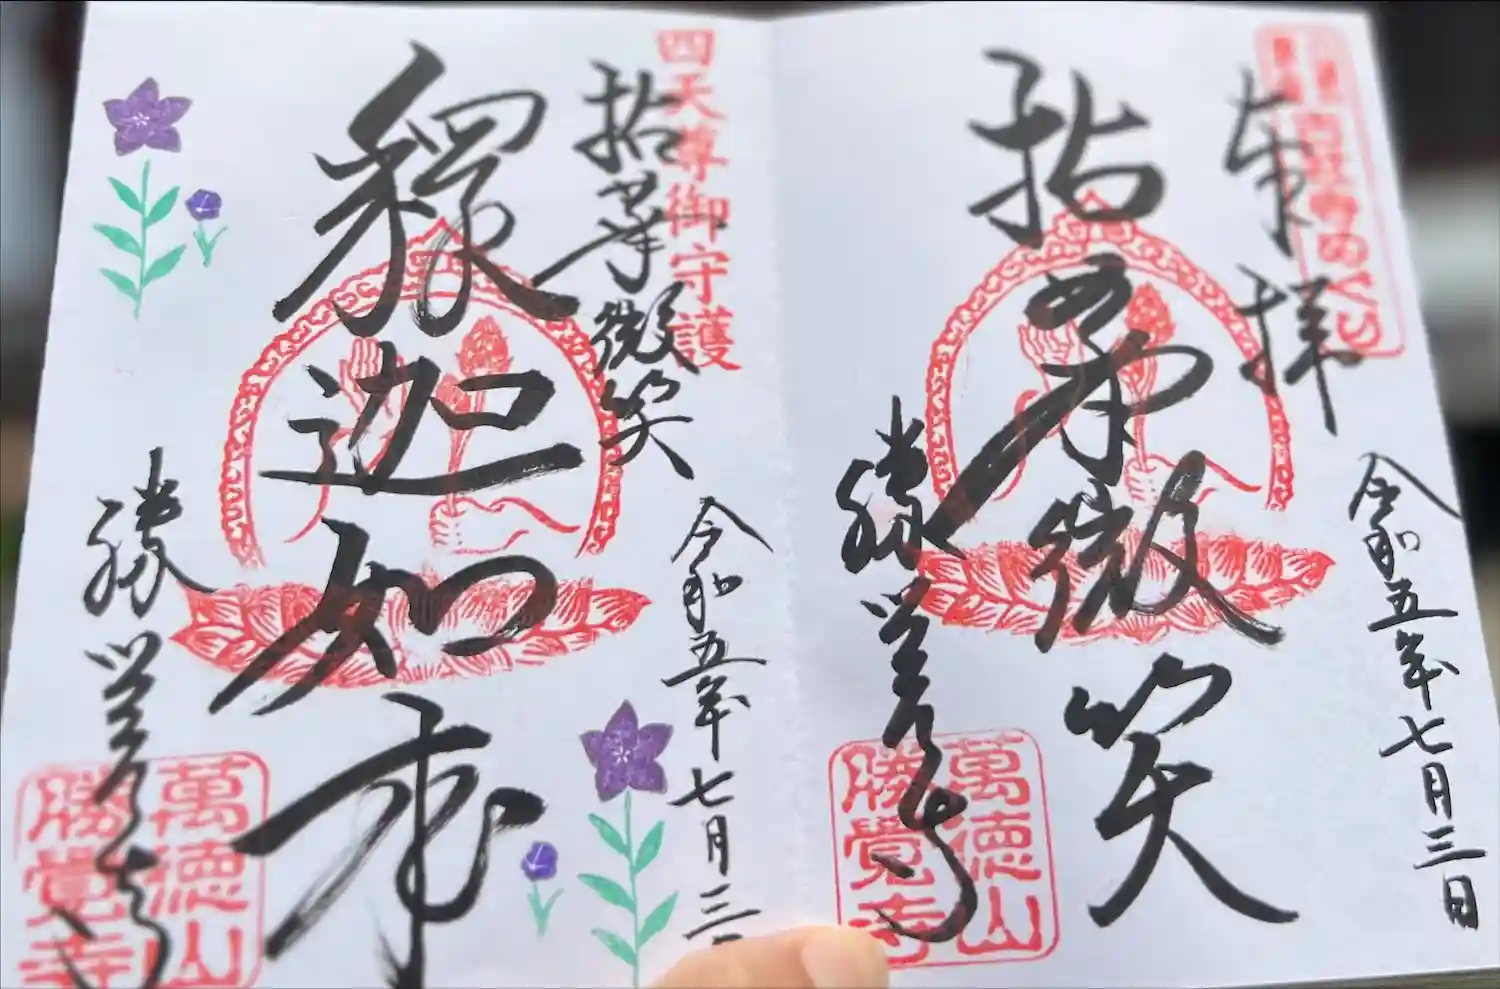 奉拝
拈華微笑
令和五年七月三日
勝覺寺
萬德山
勝覺寺
四天尊御守護
拈華微笑
釋迦如来
令和五年七月三
勝覺寺
萬德山
勝覺寺